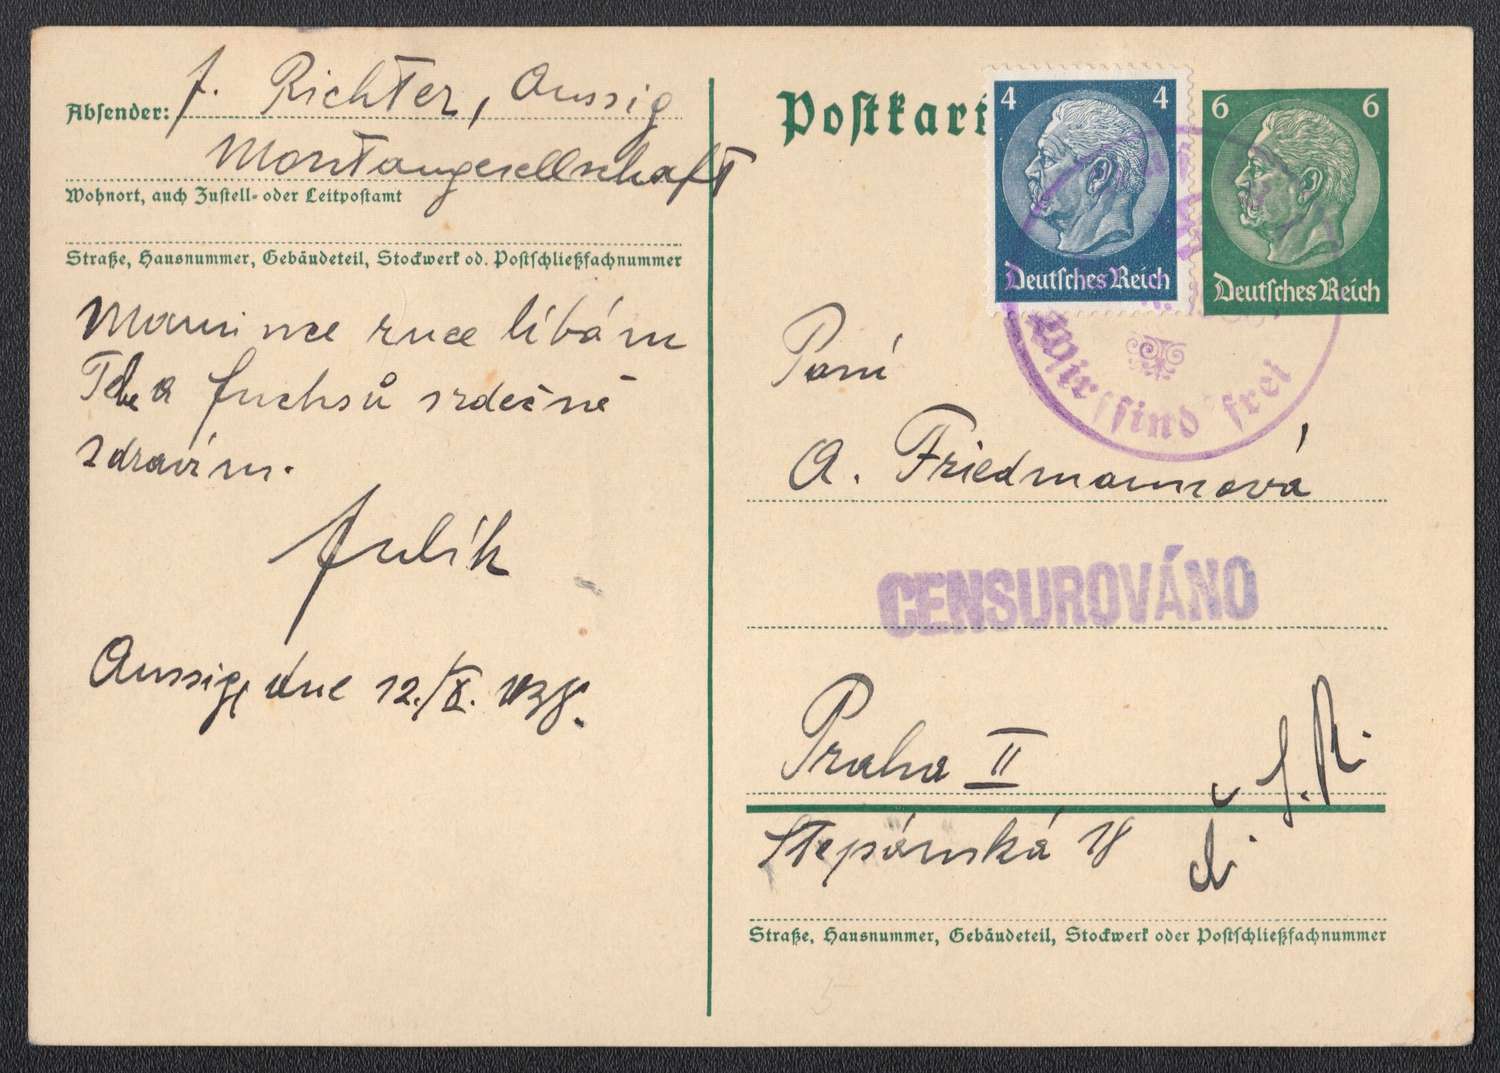 Absender: J. Richter, Aussig
Montangesellschaft
Wohnort, auch Zustell- oder Leitpostamt
Straße, Hausnummer, Gebäudeteil, Stockwerk od. Postschließfachnummer
Mamince ruce líbám
Tebe a Fuchsů srdečně
zdravím.
Julík
Aussig, dne 12./X. 1938.
Postkart
4 4
Deutsches Reich
6 6
Deutsches Reich
Wir sind frei
Paní
A. Friedmannová
CENSUROVÁNO
Praha II
Stepánská 18
Straße, Hausnummer, Gebäudeteil, Stockwerk oder Postschließfachnummer